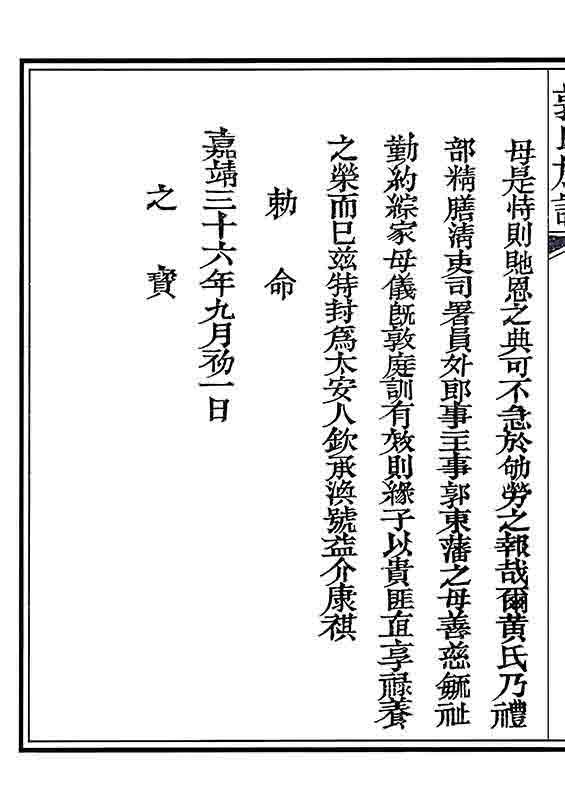 郭氏族譜
母是恃則貤恩之典可不急於劬勞之報哉爾黄氏乃禮
部精膳淸吏司署員外郎事主事郭東藩之母善慈毓祉
勤約綜家母儀旣敦庭訓有效則緣子以貴匪直享祿養
之榮而巳玆特封爲太安人欽承渙號益介康祺
勅命
嘉靖三十六年九月初一日
之寳